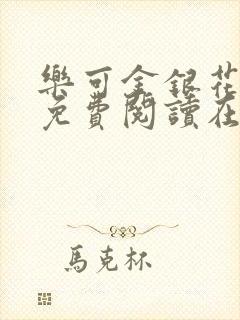 樂可金銀花
免費閱讀在
馬克杯